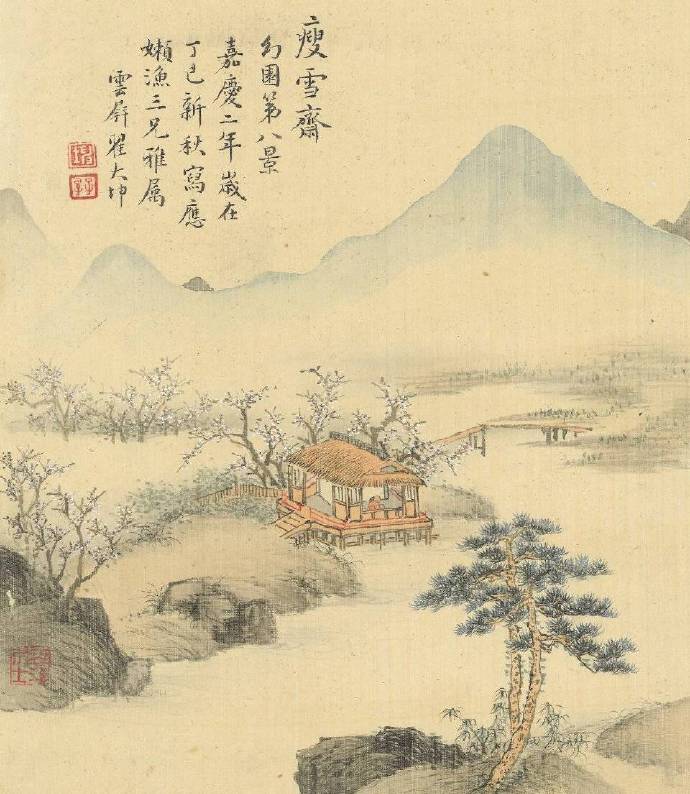 瘦雪齋
幻園第八景
嘉慶二年歲在
丁巳新秋寫應
嬾漁三兄雅属
雲屏翟大坤